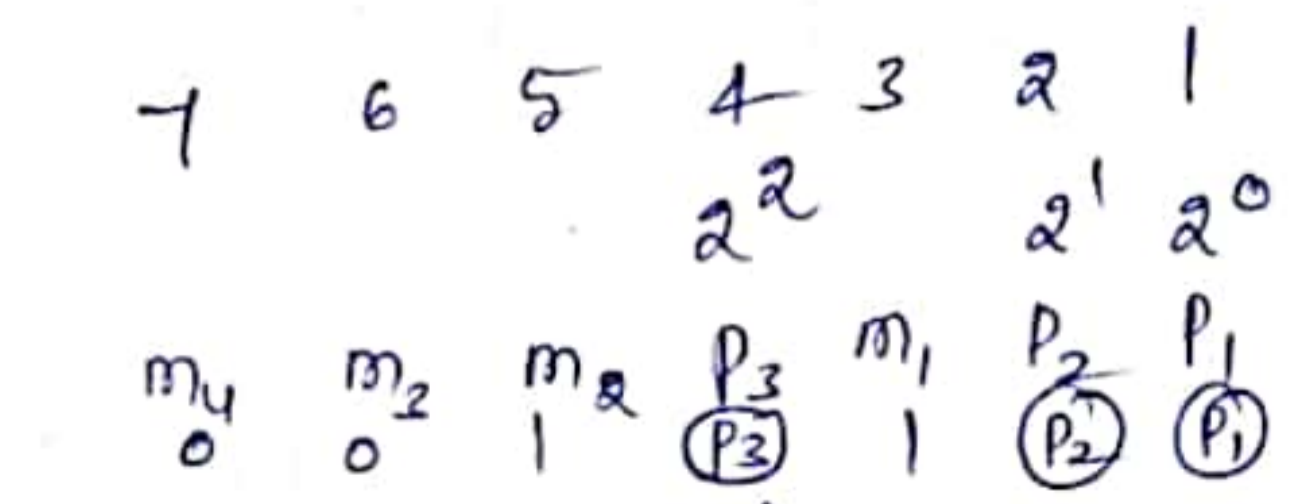 7 6 5 4 3 2 1
2² 2¹ 2⁰
m₄ m₃ m₂ P₃ m₁ P₂ P₁
0 0 1 P₃ 1 P₂ P₁